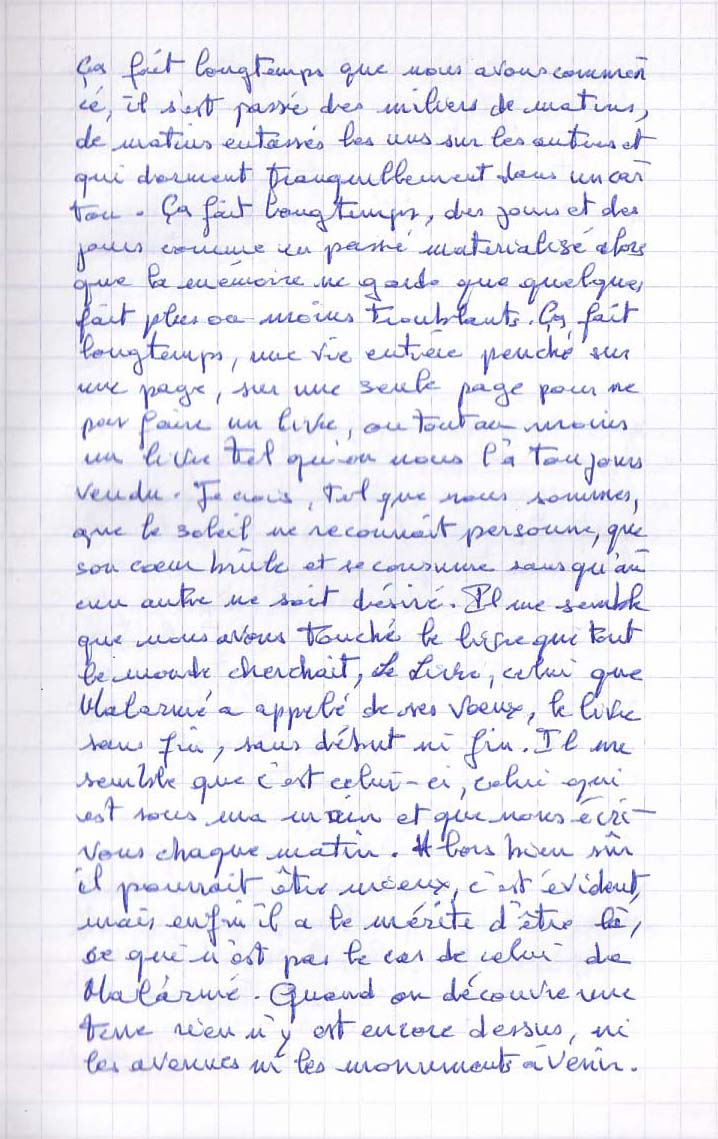 Ça fait longtemps que nous avons commen
cé, il s'est passé des miliers de matins,
de matins entassés les uns sur les autres et
qui dorment tranquillement dans un car
ton. Ça fait longtemps, des jours et des
jours comme un passé materialisé alors
que la mémoire ne garde que quelques
fait plus ou moins troublants. Ça fait
longtemps, une vie entière penché sur
une page, sur une seule page pour ne
pas faire un livre, ou tout au moins
un livre tel qu'on nous l'a toujours
vendu. Je crois, tel que nous sommes,
que le soleil ne reconnait personne, que
son coeur brûle et se consume sans qu'au
cun autre ne soit désiré. Il me semble
que nous avons touché le livre que tout
le monde cherchait, Le Livre, celui que
Malarmé a appelé de ses voeux, le livre
sans fin, sans début ni fin. Il me
semble que c'est celui-ci, celui qui
est sous ma main et que nous écri-
vons chaque matin. Alors bien sûr
il pourrait être mieux, c'est évident,
mais enfin il a le mérite d'être là,
ce qui n'est pas le cas de celui de
Malarmé. Quand on découvre une
terre rien n'y est encore dessus, ni
les avenues ni les monuments à venir.